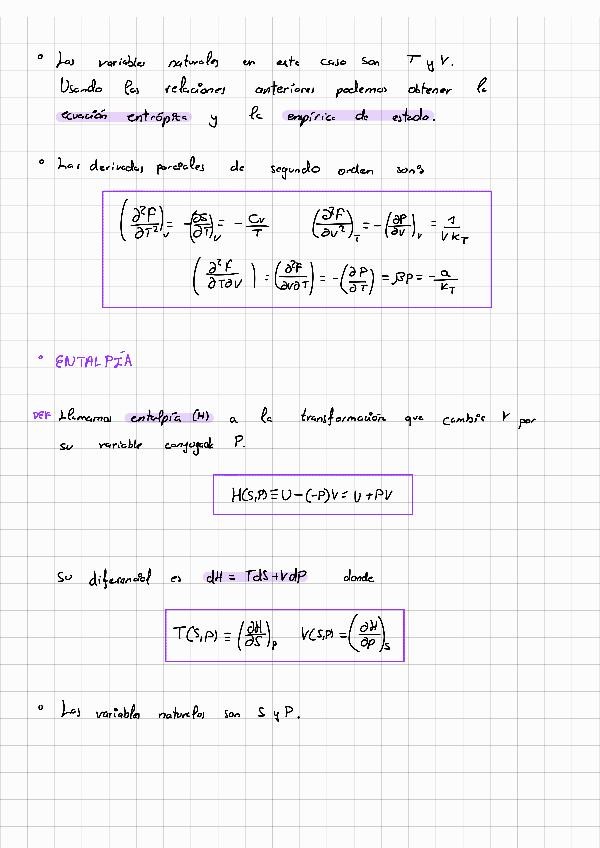 ° Las variables naturales en este caso son T y V.
Usando las relaciones anteriores podemos obtener la
ecuación entrópica y la empírica de estado.
° Las derivadas parciales de segundo orden son:
(∂²F/∂T²)_V = -(∂S/∂T)_V = - Cv/T (∂²F/∂V²)_T = -(∂P/∂V)_V = 1/(V K_T)
(∂²F/∂T∂V) = (∂²F/∂V∂T) = -(∂P/∂T) = βP = -α/K_T
° ENTALPÍA
DEF Llamamos entalpía (H) a la transformación que cambia V por
su variable conjugada P.
H(S,P) ≡ U - (-P)V = U + PV
Su diferencial es dH = TdS + VdP donde
T(S,P) ≡ (∂H/∂S)_P V(S,P) = (∂H/∂P)_S
° Las variables naturales son S y P.